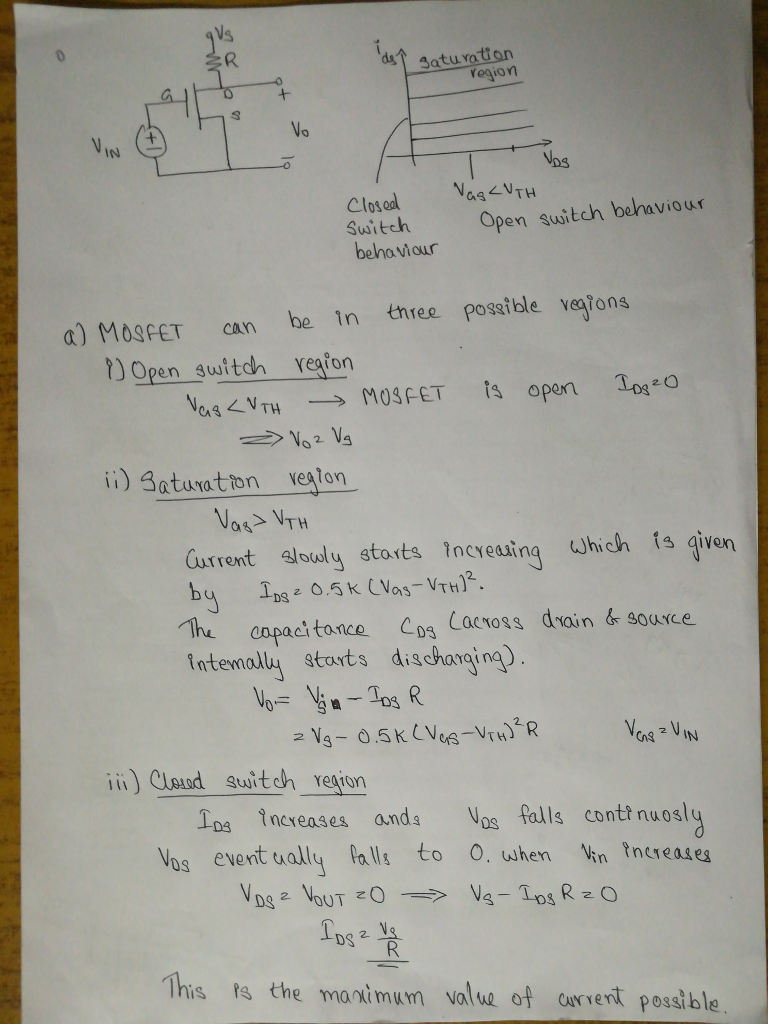 VS
R
G
D
S
+
VIN
+
-
Vo
-
ids
Saturation
region
VDS
VGS<VTH
Closed
Switch
behaviour
Open switch behaviour
a) MOSFET can be in three possible regions
i) Open switch region
VGS < VTH → MOSFET is open IDS=0
⟹ Vo = VS
ii) Saturation region
VGS > VTH
Current slowly starts increasing which is given
by IDS = 0.5K (VGS-VTH)².
The capacitance CDS (across drain & source
internally starts discharging).
Vo = VS - IDS R
= VS - 0.5K (VGS-VTH)² R VGS = VIN
iii) Closed switch region
IDS increases ands VDS falls continuosly
VDS eventually falls to 0. when Vin increases
VDS = VOUT = 0 ⟹ VS - IDS R = 0
IDS = VS/R
This is the maximum value of current possible.